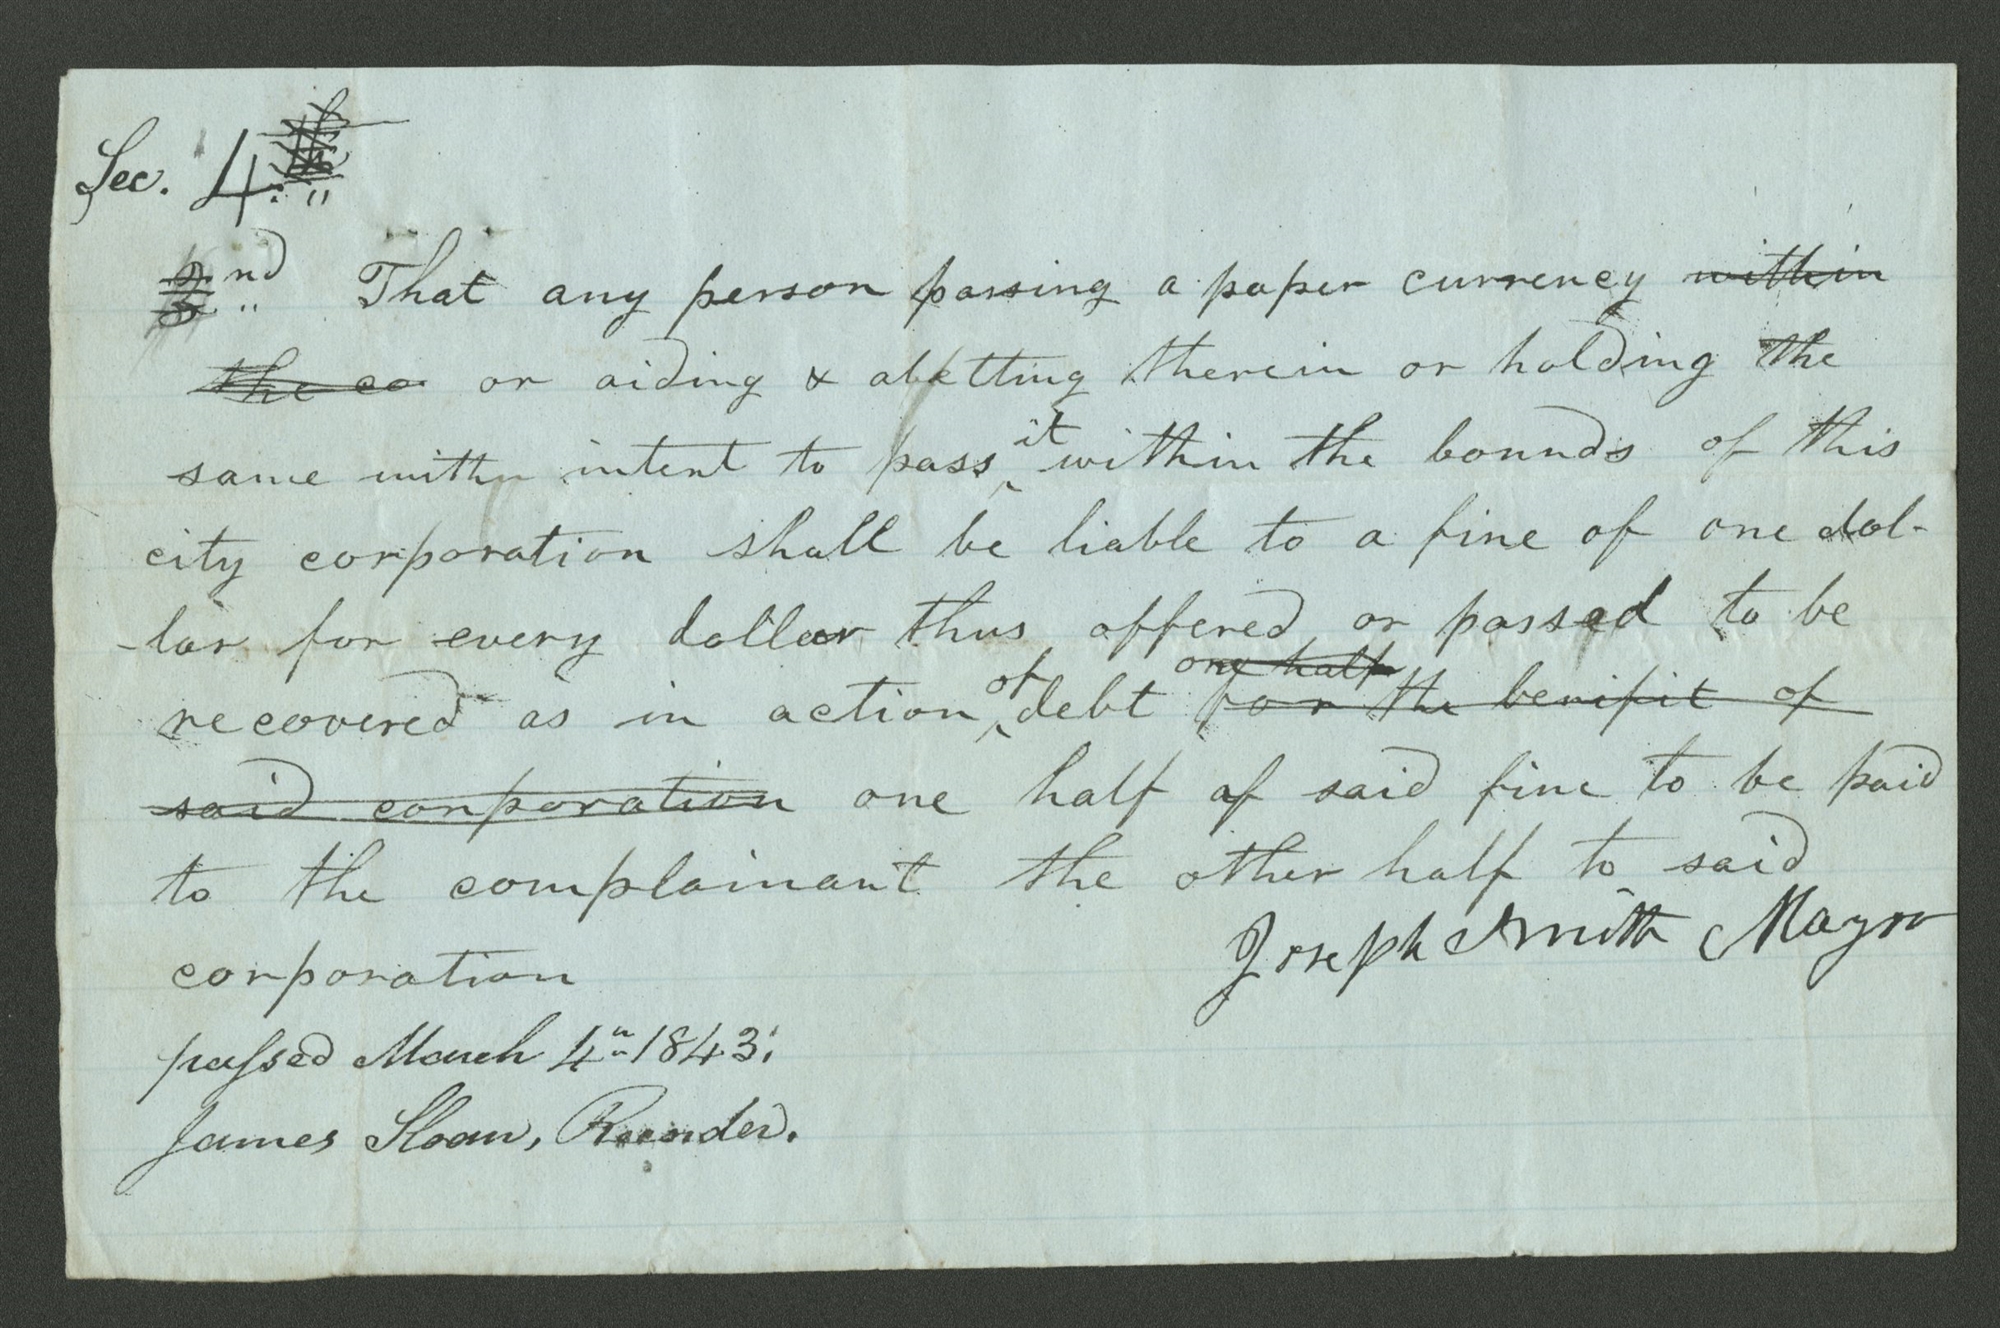 Sec. 4.
2nd That any person passing a paper currency within
the co or aiding & abetting therein or holding the
same with intent to pass it within the bounds of this
city corporation shall be liable to a fine of one dol-
-lar for every dollar thus offered or passed to be
one half
recovered as in action of debt for the benifit of
said corporation one half of said fine to be paid
to the complainant the other half to said
Joseph Smith Mayor
corporation
passed March 4th 1843.
James Sloan, Recorder.